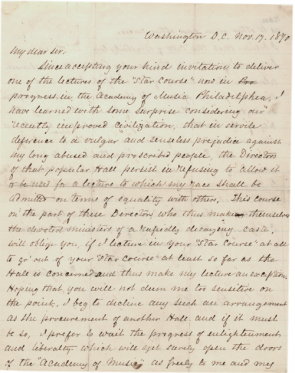 Washington D.C. Nov. 17. 1870
My dear Sir.
Since accepting your kind invitation to deliver
one of the lectures of the "Star Course" now in
progress in the Academy of Music Philadelphia, I
have learned with some surprise considering our
recently improved civilization, that in servile
deference to a vulgar and senseless prejudice against
my long abused and proscribed people, the Directors
of that popular Hall persist in refusing to allow it
to be used for a lecture to which my race shall be
admitted on terms of equality with others. This course
on the part of these Directors who thus make themselves
the devoted ministers of a rapidly decaying caste,
will oblige you, if I lecture in your "Star Course" at all
to go out of your "Star Course" at least so far as the
Hall is concerned and thus make my lecture an exception.
Hoping that you will not deem me too sensitive on
the point, I beg to decline any such an arrangement
as the procurement of another Hall, and if it must
be so, I prefer to wait the progress of enlightenment
and liberality which will yet surely open the doors
of the "Academy of Music" as freely to me and my